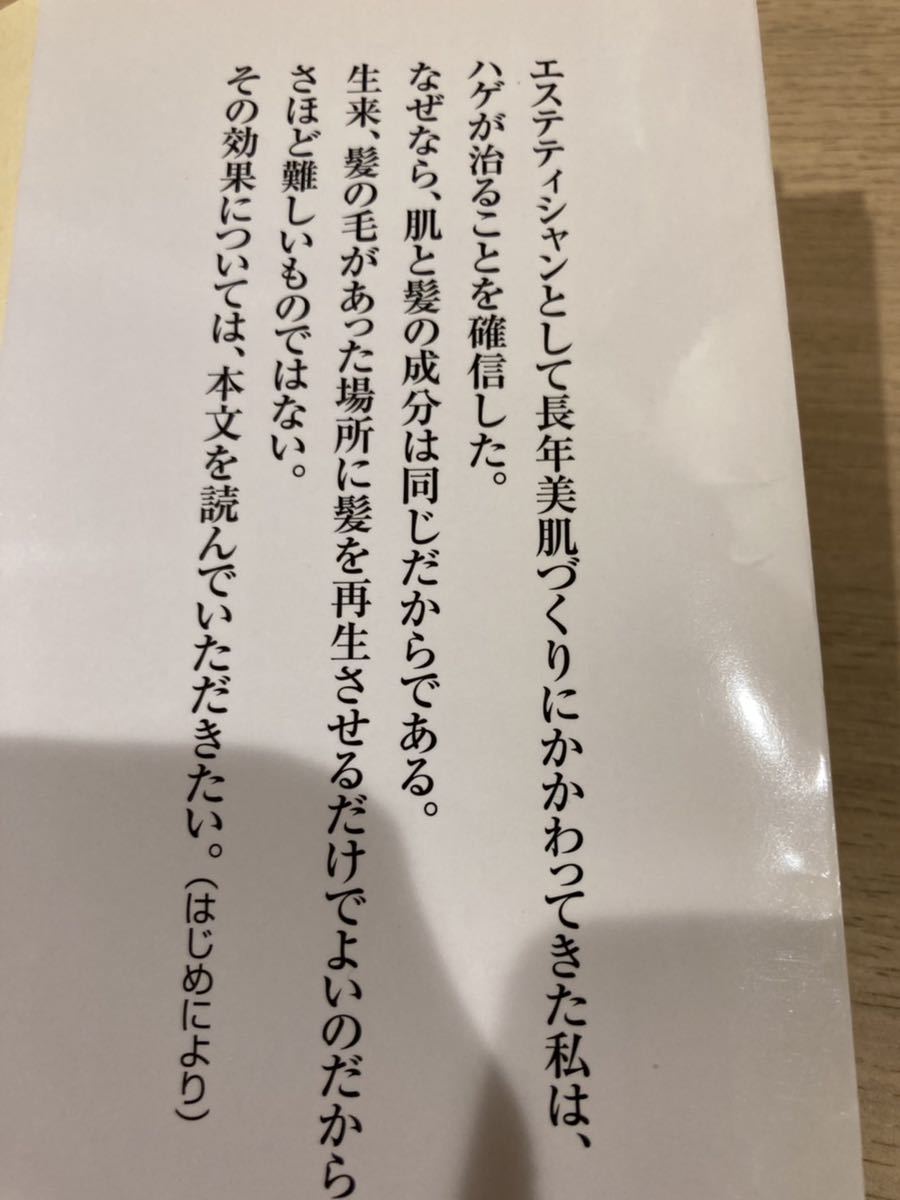 エステティシャンとして長年美肌づくりにかかわってきた私は、
ハゲが治ることを確信した。
なぜなら、肌と髪の成分は同じだからである。
生来、髪の毛があった場所に髪を再生させるだけでよいのだから
さほど難しいものではない。
その効果については、本文を読んでいただきたい。（はじめにより）